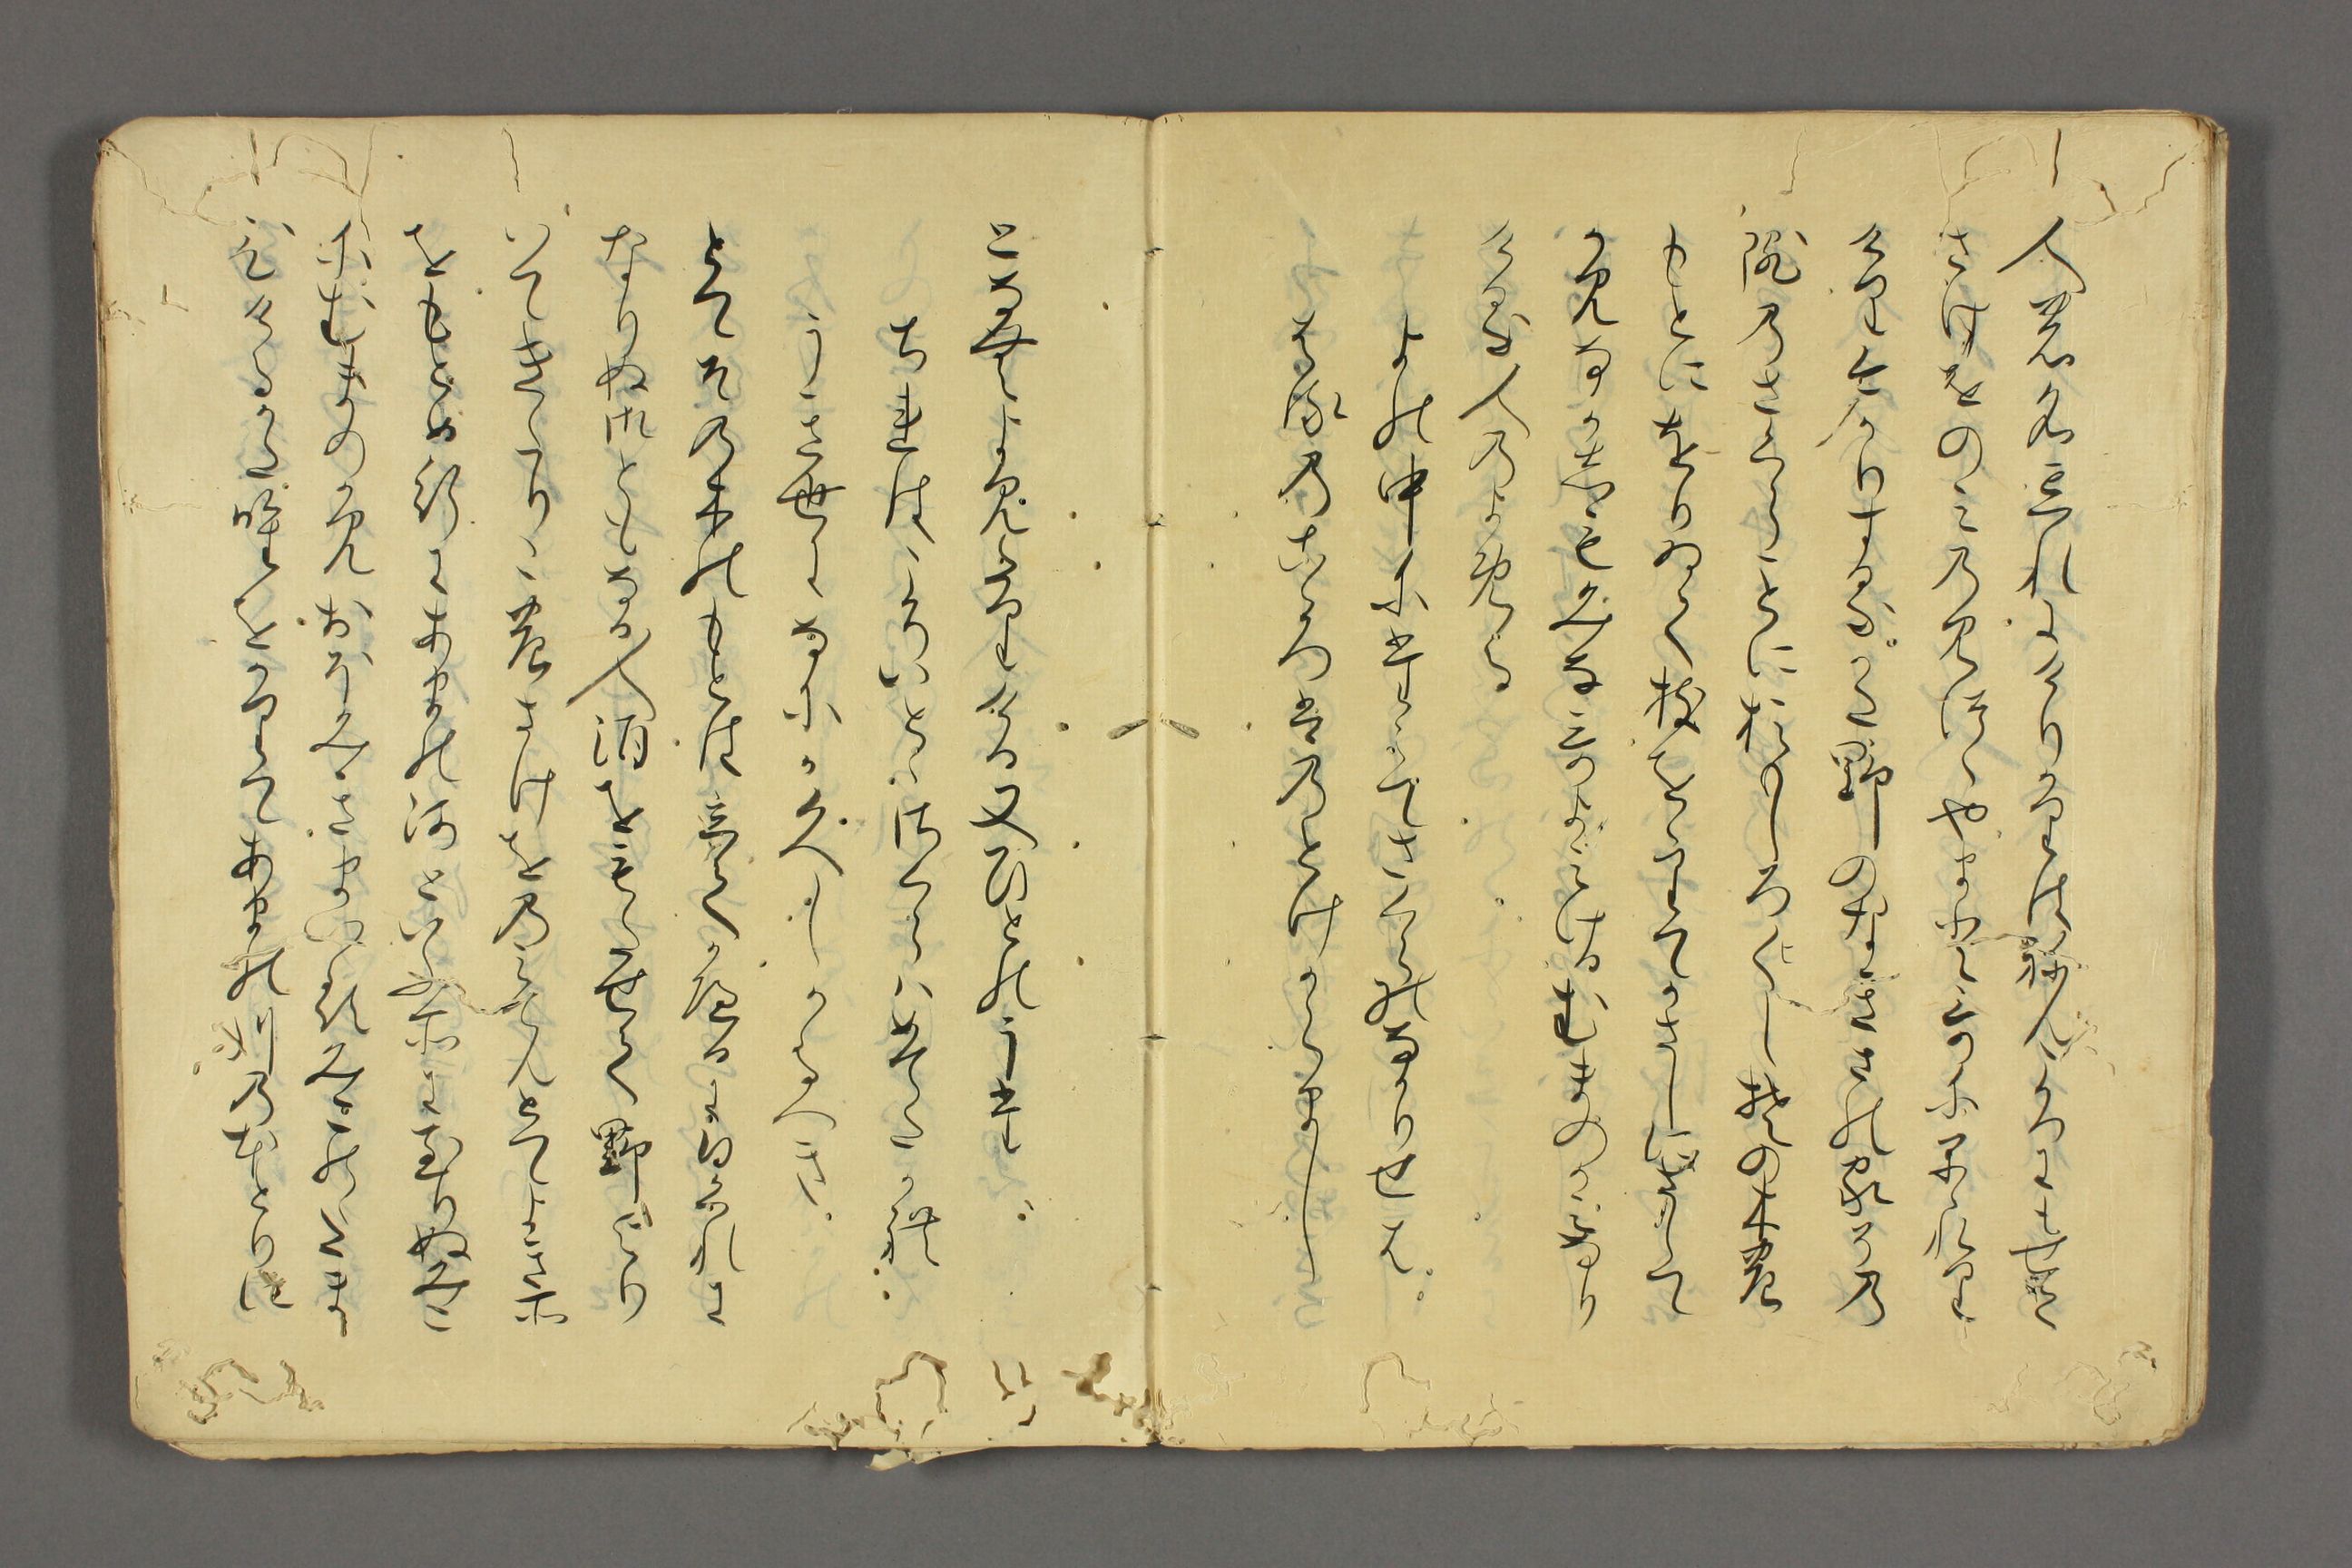 人の名忘れにけりかりはねんころにもせて
さけをのみのみつゝやまとうたにかゝれり
けりいまかりするかた野のなきさのいへその
院のさくらことにおもしろしその木の
もとにおりゐて枝をおりてかさしにさして
かみなかしもみなうたよみけりむまのかみなり
ける人のよめる
よの中にたえてさくらのなかりせは
はるのこゝろはのとけからまし
となむよみたりける又ひとのうた
ちれはこそいとゝさくらはめてたけれ
うき世になにか久しかるへき
とてその木のもとは立てかへるに日くれに
なりぬ御ともなる人酒をもたせて野より
いてきたりこのさけをのみてんとてよき所
をもとめ行にあまの河といふ所にいたりぬみこ
にむまのかみおほみきまいるみこのゝたま
ひけるかた野をかりてあまの河のほとりに